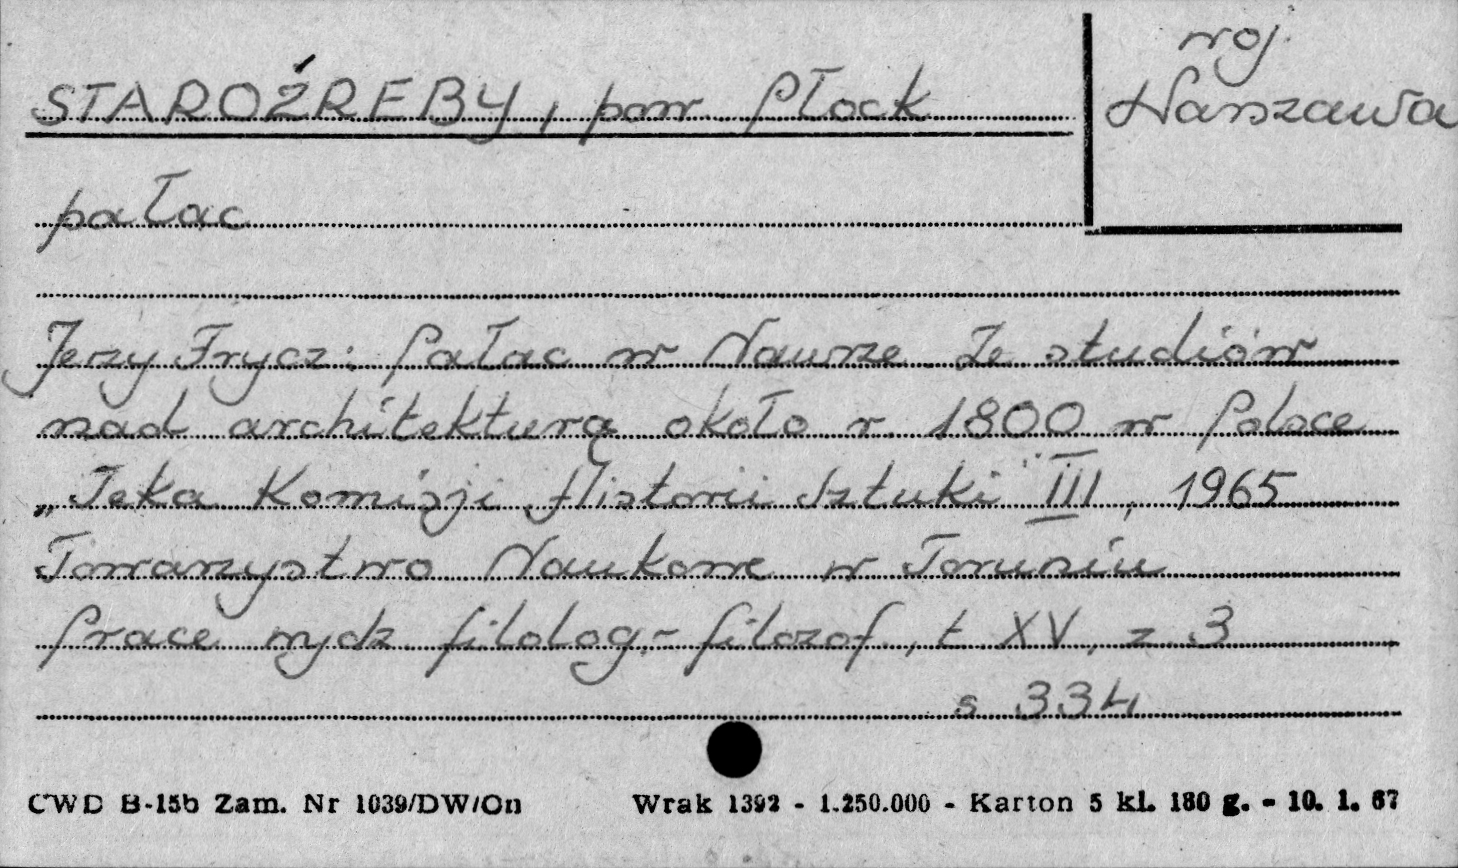 STAROŹREBY, pow. Płock
woj.
Warszawa
pałac
Jerzy Frycz: Pałac w Nawrze. Ze studiów
nad architekturą około r. 1800 w Polsce
„Teka Komisji Historii Sztuki" III, 1965
Towarzystwo Naukowe w Toruniu
Prace wydz. filolog.-filozof., t XV, z 3
s 334
CWD B-15b Zam. Nr 1039/DW/On
Wrak 1392 - 1.250.000 - Karton 5 kl. 180 g. - 10. 1. 67